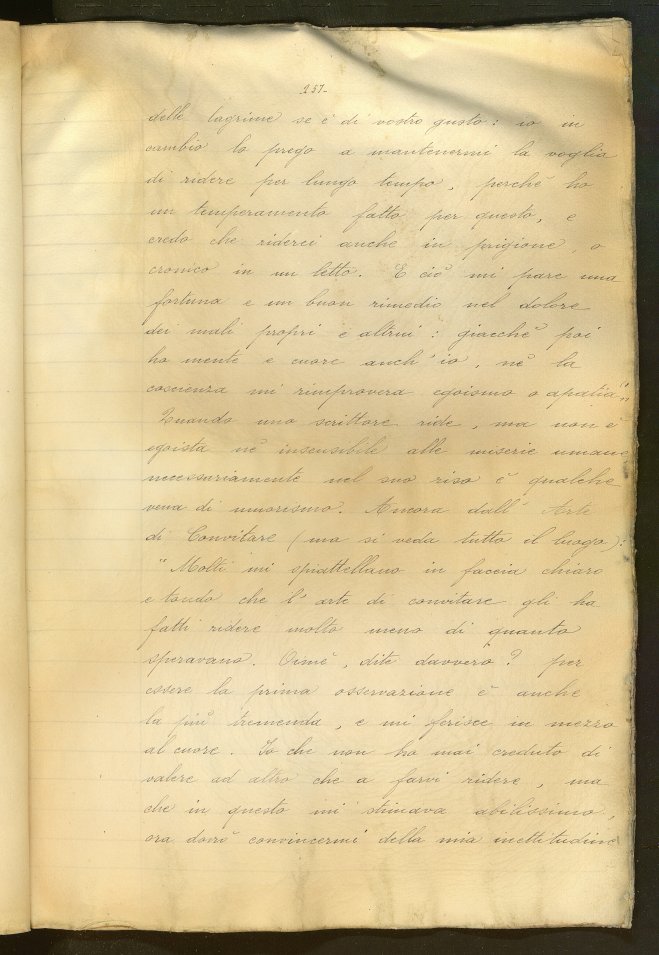 157-
delle lagrime se è di vostro gusto: io in
cambio lo prego a mantenermi la voglia
di ridere per lungo tempo, perchè ho
un temperamento fatto per questo, e
credo che riderei anche in prigione, o
cronico in un letto. E ciò mi pare una
fortuna e un buon rimedio nel dolore
dei mali propri e altrui: giacchè poi
ho mente e cuore anch'io, nè la
coscienza mi rimprovera egoismo o apatia".
Quando uno scrittore ride, ma non è
egoista nè insensibile alle miserie umane
necessariamente nel suo riso è qualche
vena di umorismo. Ancora dall'Arte
di Convitare (ma si veda tutto il luogo):
"Molti mi spiattellano in faccia chiaro
e tondo che l'arte di convitare gli ha
fatti ridere molto meno di quanto
speravano. Oimè, dite davvero? per
essere la prima osservazione è anche
la più tremenda, e mi ferisce in mezzo
al cuore. Io che non ho mai creduto di
valere ad altro che a farvi ridere, ma
che in questo mi stimava abilissimo,
ora dovrò convincermi della mia inettitudine